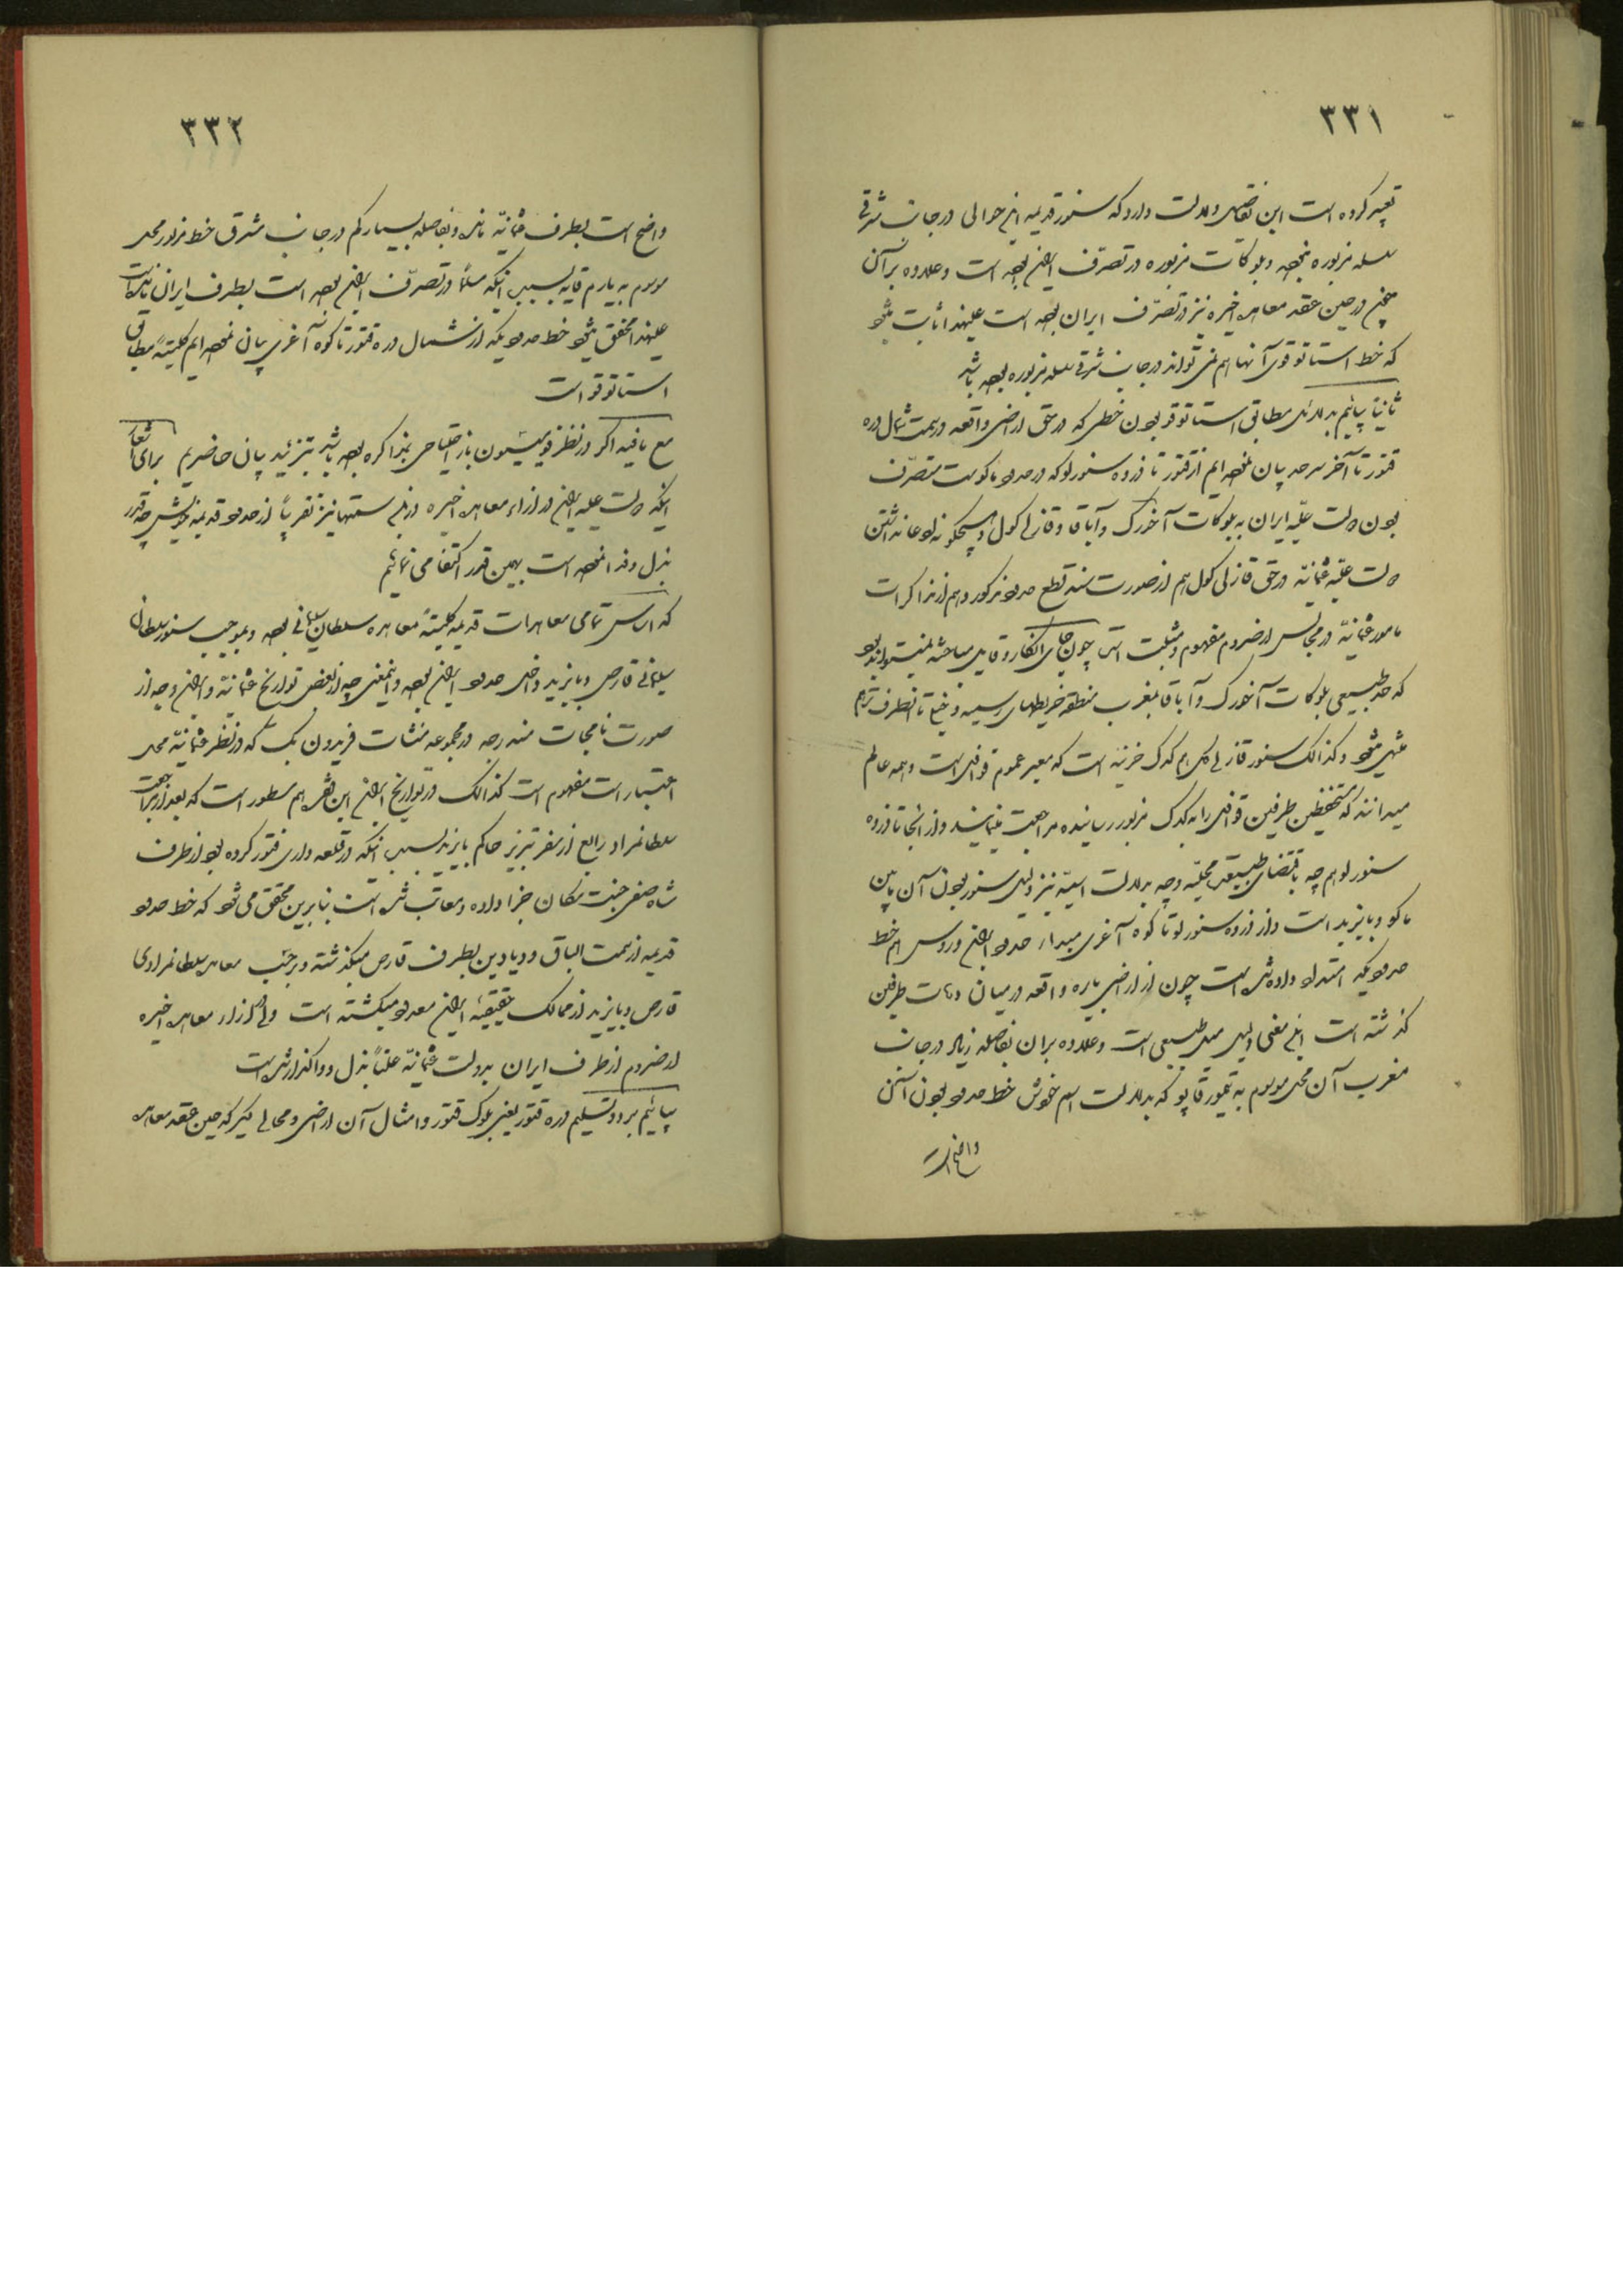 ۳۳۱
تعبیر کرده است این تفاصیل دلالت دارد که سنور قدیمه این حوالی در جانب شرقی
سلسله مزبوره نبوده و بلوکات مزبوره در تصرف ایران بوده است و علاوه بر آن
همچنین در حین عقد معاهده اخیره نیز در تصرّف ایران بوده است علیهذا ثابت میشود
که خط استاتوقوی آنها هم نمی تواند در جانب شرقی سلسله مزبوره بوده باشد
ثانیاً بیائیم بدلائل مطابق استاتوقو بودن خطی که در حق اراضی واقعه در سمت شمال دره
قتور تا آخر سرحد بیان نموده ایم از قتور تا ذروه سنورلو که در حدود ماکوست متصرّف
بودن دولت علیّه ایران به بلوکات آخورک و آباقا و قازلی کول و هیچگونه ادعا نداشتن
دولت علیّه عثمانیّه در حق قازلی کول هم از صورت سند قطع حدود مذکور و هم از مذاکرات
مامور عثمانیّه در مجالس ارضروم مفهوم و مثبت است چون جای انکار و قابل مباحثه نمیتواند بود
که حد طبیعی بلوکات آخورک و آباقا بمغرب منطقه خریطهای رسمیه و خیلی تا آنطرف تر هم
منتهی میشود و کذالک سنور قازلی کول هم کدک خزینه است که معبر عموم قوافل است و همه عالم
میدانند که مستحفظین طرفین قوافل را به کدک مزبور رسانیده مراجعت مینمایند و از آنجا تا ذروه
سنورلو هم چه باقتضای طبیعت محلیّه و چه بدلالت اسمیّه نیز دلیل سنور بودن آن مابین
ماکو و بایزید است و از ذروه سنورلو تا کوه آغری مبداء حدود ایران و روس هم خط
حدودیکه امتداد داده شده است چون از اراضی یاره واقعه در میان دهات طرفین
گذشته است اینمعنی دلیل میل طبیعی است و علاوه بران بفاصله زیاد در جانب
مغرب آن محلی موسوم به تیمور قاپو که بدلالت اسم خودش خط حدود بودن آن
واضح است
۳۳۲
واضح است بطرف عثمانیّه مانده و بفاصله بسیار کم در جانب شرق خط مزبور محلی
موسوم به یارم قایه بسبب اینکه مسلماً در تصرّف ایران بوده است بطرف ایران مانده است
علیهذا محقق میشود خط حدودیکه از شمال دره قتور تا کوه آغری بیان نموده ایم کلیتهً مطابق
استاتوقو است
مع مافیه اگر در نظر قومیسیون باز احتیاجی بمذاکره بوده باشد بتزئید بیان حاضریم برای اشعار
اینکه دولت علیه ایران در ازاء معاهده اخیره در این سمتها نیز تقریباً از حدود قدیمه خویش چقدر
بذل و فدا نموده است بهمین قدر اکتفا می نمائیم
که اساس تمامی معاهدات قدیمه کلیتهً معاهده سلطان سلیمانی بوده و بموجب سنور سلطان
سلیمانی قارص و بایزید داخل حدود ایران بوده و اینمعنی چه از بعض تواریخ عثمانیّه و ایران و چه از
صورت نامجات مندرجه در مجموعه منشات فریدون بک که در نظر عثمانیّه محل
اعتبار است مفهوم است کذالک در تواریخ ایران این فقره هم مسطور است که بعد از مراجعت
سلطانمراد رابع از سفر تبریز حاکم بایزید بسبب اینکه در قلعه داری فتور کرده بود از طرف
شاه صفی جنت مکان جزا داده و معاقب شده است بنابرین محقق می شود که خط حدود
قدیمه از سمت الباق و دیادین بطرف قارص میگذشته و برحسب معاهده سلطانمرادی
قارص و بایزید از ممالک حقیقیّه ایران معدود میگشته است ولی در ازاء معاهده اخیره
ارضروم از طرف ایران بدولت عثمانیّه علناً بذل و واگذار شده است
بیائیم برد و تسلیم دره قتور یعنی بلوک قتور و امثال آن اراضی و محالی دیگر که حین عقد معاهده